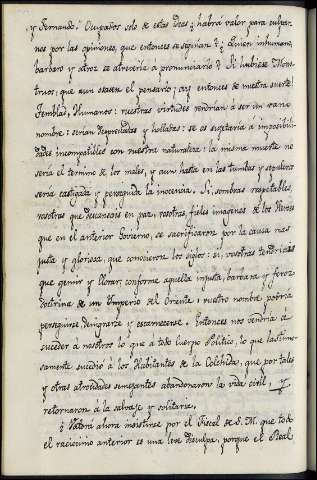 y Fernando? Ocupados solo de estas Ydeas ¿habrá valor para culpar-
nos por las opiniones, que entonces se seguian? ¿Quien inhumano,
barbaro y atroz se atreveria á pronunciarlo? Si hubiese Mons-
truos, que aun osasen el pensarlo; ay entonces de nuestra suerte!
Temblad, Humanos: nuestras virtudes vendrian á ser un vano
nombre: serian despreciadas y holladas: se os sujetaria á imposibili-
dades incompatibles con nuestra naturaleza: la misma muerte no
seria el termino de los males, y aun hasta en las tumbas y sepulcros
seria castigada y perseguida la inocencia. Si, sombras respetables,
vosotras que descansais en paz, vosotras, fieles imagenes de los Heroes
que en el anterior Govierno, se sacrificaron por la causa mas
justa y gloriosa, que conocieron los siglos: si, vosotras tendriais
que gemir y llorar; conforme aquella injusta, barbara y feroz
doctrina de un Ymperio del Oriente: vuestro nombre podria
perseguirse, denigrarse y escarnecerse. Entonces nos vendria á
suceder á nosotros lo que á todo Cuerpo Politico, lo que lastimo-
samente sucedió á los Habitantes de la Colchida, que por tales
y otras atrocidades semejantes abandonaron la vida civil, y
retornaron á la salvaje y solitaria.
¿Valdrá ahora insistirse por el Fiscal de S. M. que todo
el raciocinio anterior es una leve disculpa, porque el Real